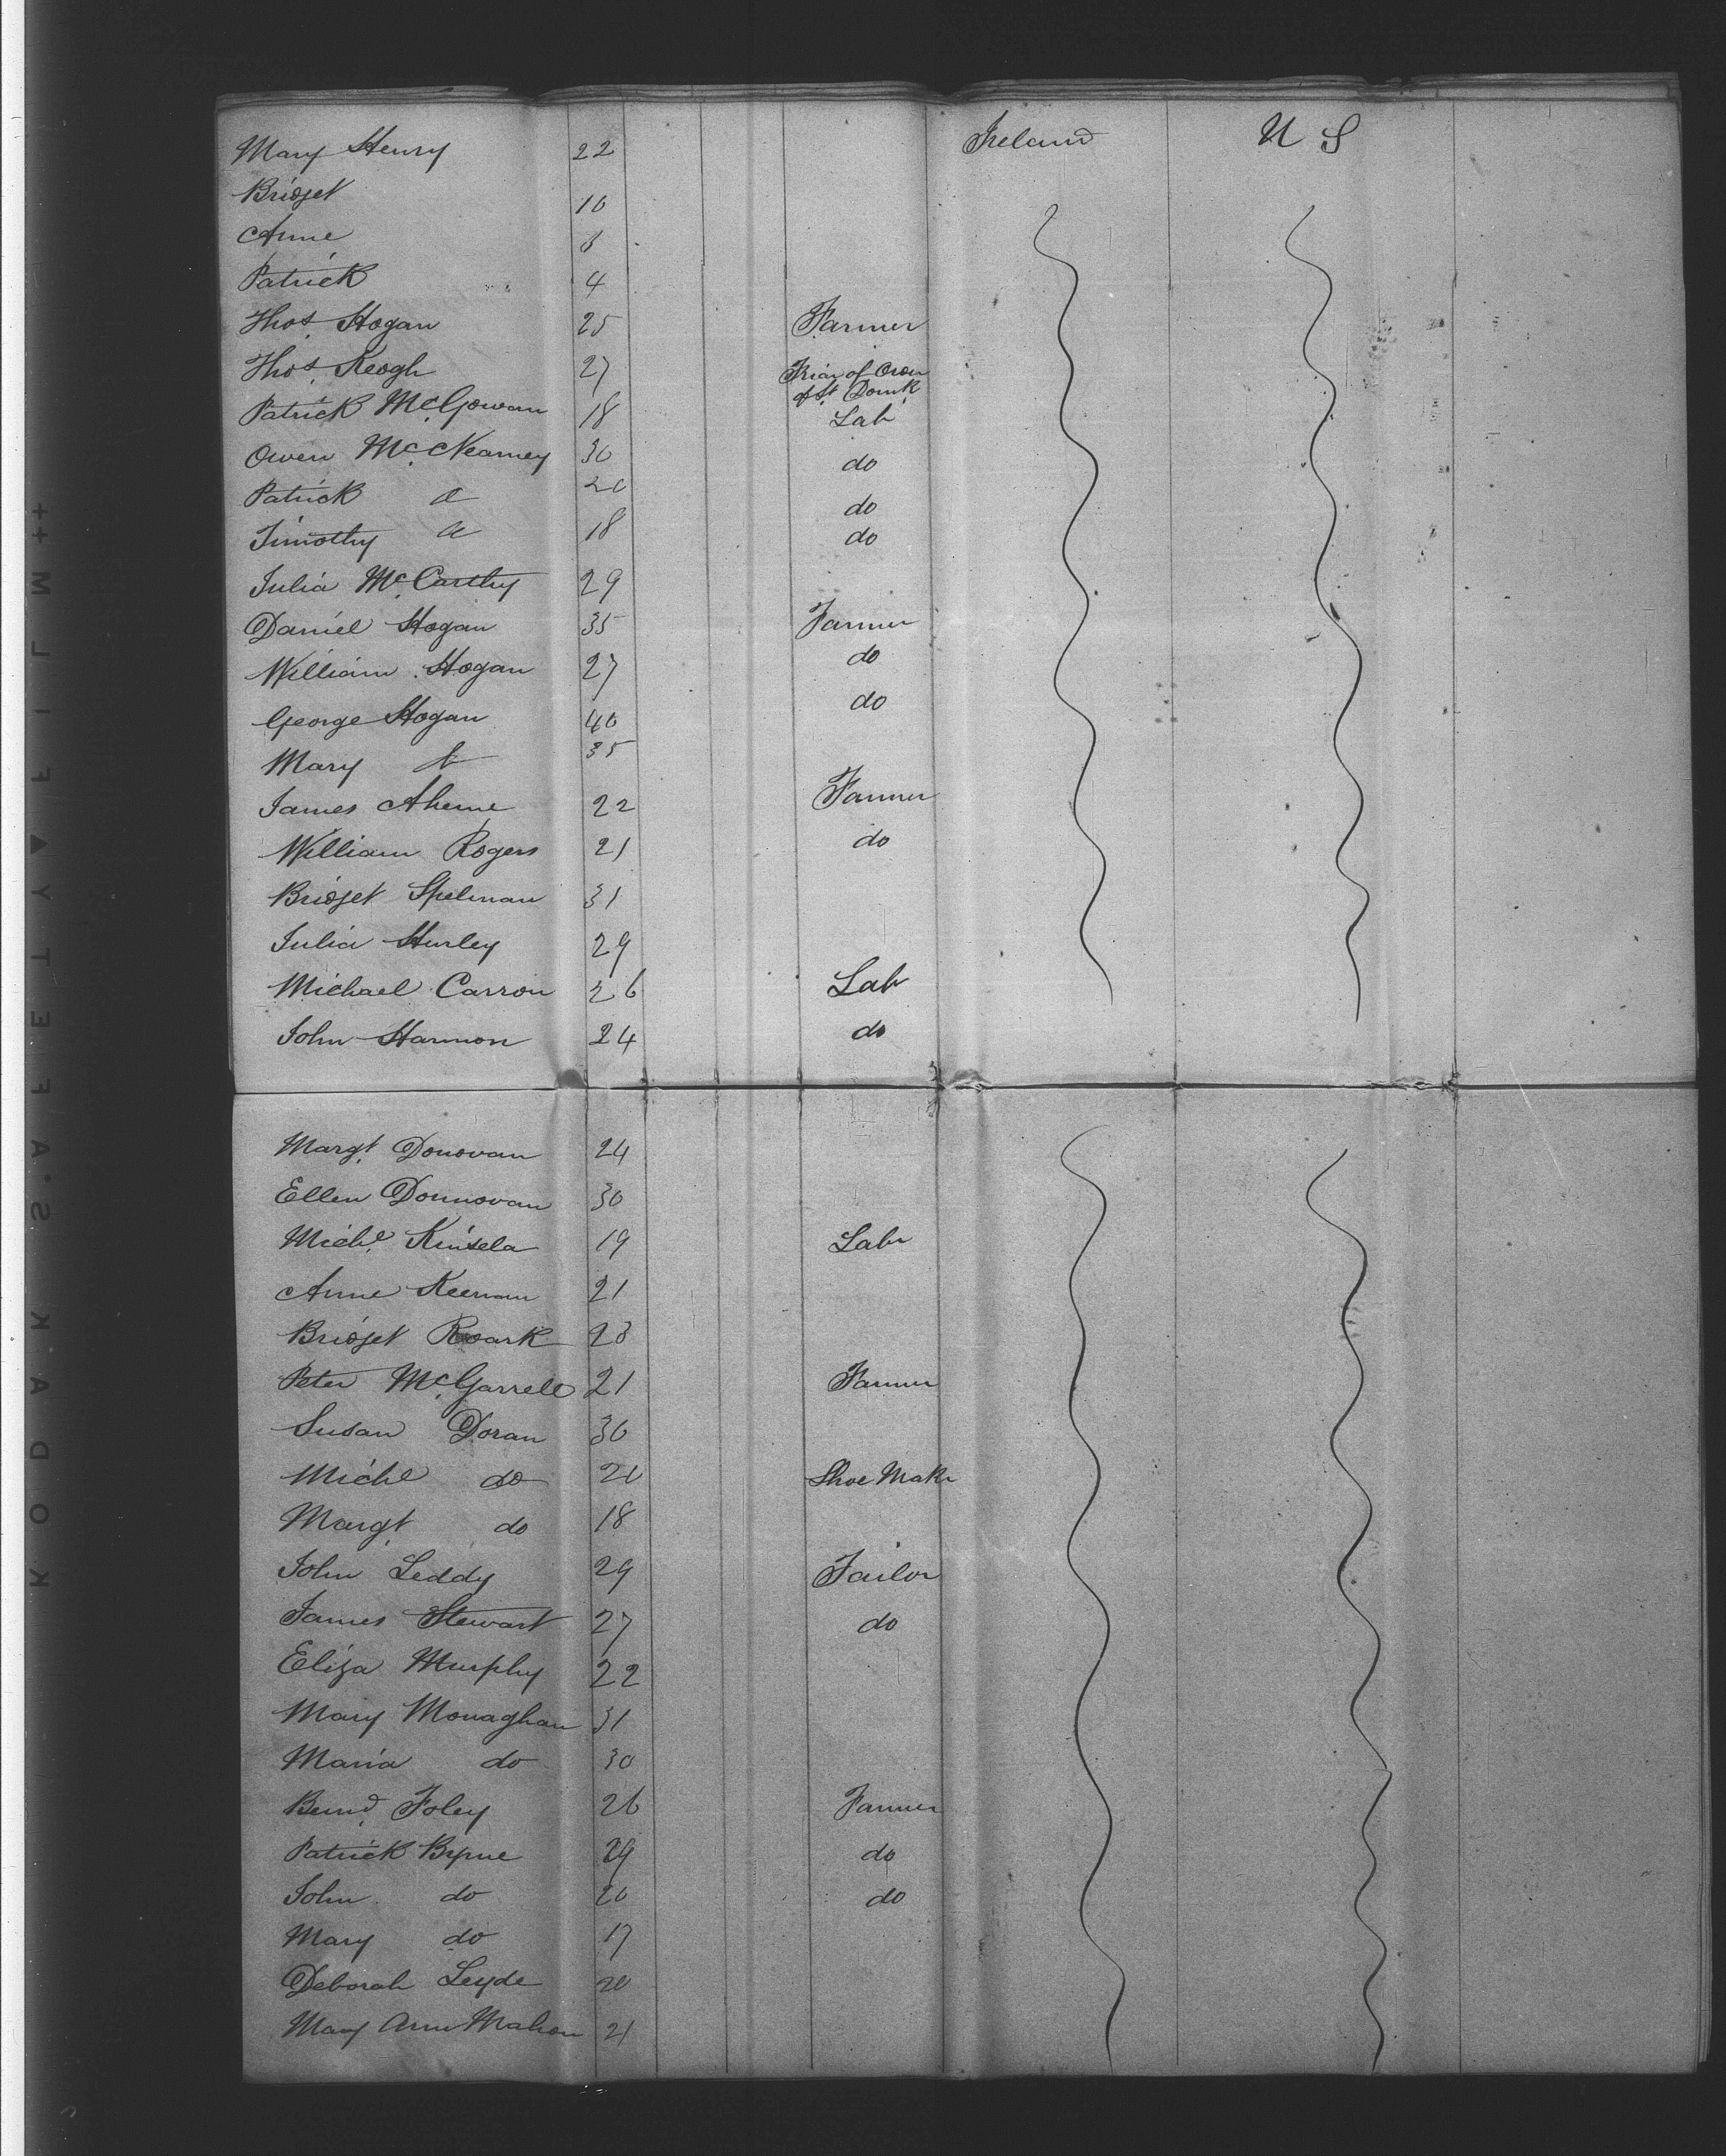 Mary Henry 22 Ireland U S
Bridget 10
Anne 8
Patrick 4
Thos. Hogan 25 Farmer
Thos. Keogh 27 Friar of Order of St. Domk
Patrick McGowan 18 Lab
Owen McNearney 30 do
Patrick do 20 do
Timothy do 18 do
Julia McCarthy 29
Daniel Hogan 35 Farmer
William Hogan 27 do
George Hogan 40 do
Mary 35
James Aherne 22 Farmer
William Rogers 21 do
Bridget Spelman 31
Julia Hurley 29
Michael Carron 26 Lab
John Harmon 24 do
Margt. Donovan 24
Ellen Donnovan 30
Michl. Kinsela 19 Labr
Anne Keernan 21
Bridget Roark 23
Peter McGarrell 21 Farmer
Susan Doran 30
Michl do 20 Shoe Makr
Margt do 18
John Leddy 29 Tailor
James Stewart 27 do
Eliza Murphy 22
Mary Monaghan 31
Maria do 30
Bernd. Foley 26 Farmer
Patrick Byrne 29 do
John do 20 do
Mary do 17
Deborah Leyde 20
Mary Ann Mahon 21
KODAK S.A.F.E.T.Y ▲ FILM ++